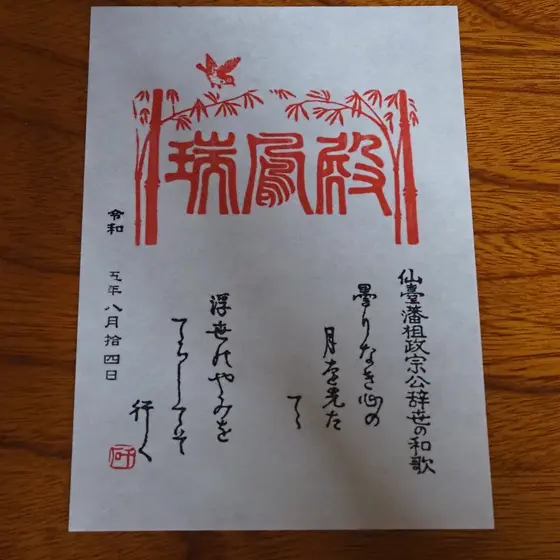 瑞鳳殿
仙臺藩祖政宗公辞世の和歌
曇りなき心の
月を先た
てゝ
浮世のやみを
てらしてそ
行く
令和 五年八月拾四日